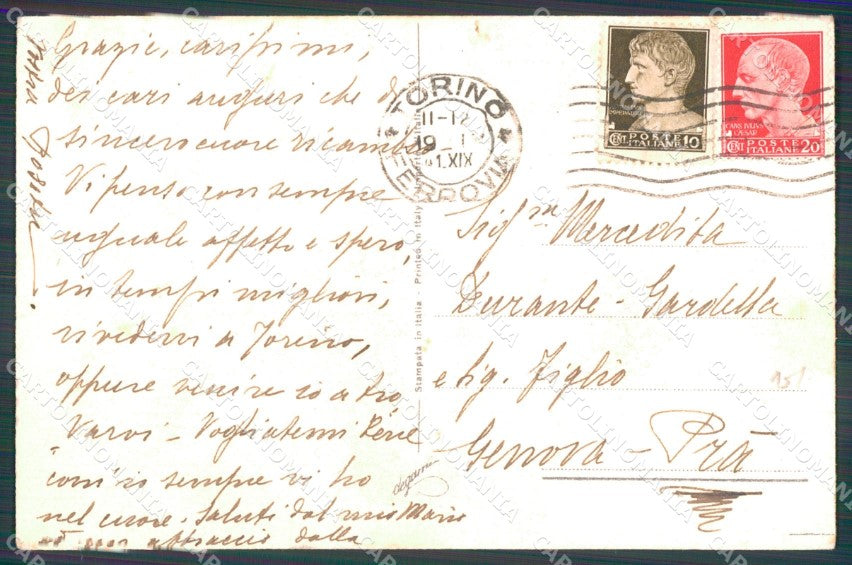 Grazie, carissimi,
dei cari auguri che di
sincero cuore ricambio.
Vi penso con sempre
uguale affetto e spero,
in tempi migliori,
rivedervi a Torino,
oppure venire io a tro
varvi - Vogliatemi bene
com'io sempre vi ho
nel cuore. Saluti dal mio Mario
abbraccio dalla
vostra
TORINO
FERROVIA
11-12
19 I
41.XIX
CENT POSTE ITALIANE 10
CAIVS IVLIVS CAESAR
CENT POSTE ITALIANE 20
Stampata in Italia Printed in Italy
degami
Sig.ra Mercedita
Durante-Gardella
e Sig. Figlio
Genova-Prà
15/
CARTOLINOMANIA